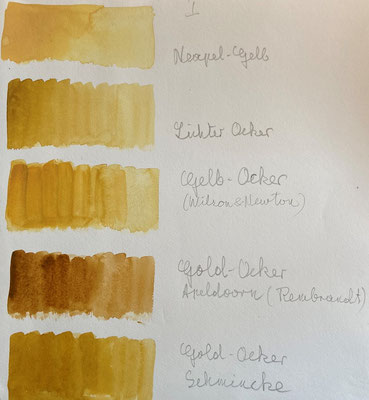 I
Neapel-Gelb
Lichter Ocker
Gelb-Ocker
(Wilson & Newton)
Gold-Ocker
Apeldoorn (Rembrandt)
Gold-Ocker
Schmincke